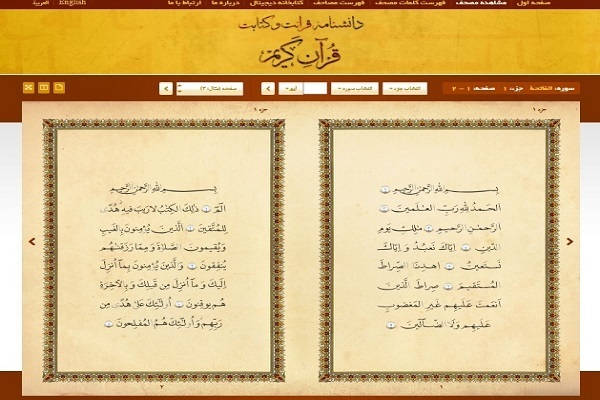 صفحه اول مشاهده مصحف فهرست کلمات مصحف فهرست مصاحف کتابخانه دیجیتال درباره ما ارتباط با ما English العربية
دانشنامه قرائت و کتابت
قرآن کریم
سوره: الفاتحة جزء: ۱ صفحه: ۱ - ۲
انتخاب جزء
انتخاب سوره
آیه
صفحه (مثال: ۳)
جزء ۱
بِسْمِ اللَّهِ الرَّحْمَٰنِ الرَّحِيمِ ۱
الْحَمْدُ لِلَّهِ رَبِّ الْعَٰلَمِينَ ۲
الرَّحْمَٰنِ الرَّحِيمِ ۳ مَٰلِكِ يَوْمِ
الدِّينِ ۴ إِيَّاكَ نَعْبُدُ وَ إِيَّاكَ
نَسْتَعِينُ ۵ اهْدِنَا الصِّرَاطَ
الْمُسْتَقِيمَ ۶ صِرَاطَ الَّذِينَ
أَنْعَمْتَ عَلَيْهِمْ غَيْرِ الْمَغْضُوبِ
عَلَيْهِمْ وَلَا الضَّالِّينَ ۷
۱
جزء ۱
بِسْمِ اللَّهِ الرَّحْمَٰنِ الرَّحِيمِ
الم ۱ ذَٰلِكَ الْكِتَٰبُ لَا رَيْبَ فِيهِ هُدًى
لِلْمُتَّقِينَ ۲ الَّذِينَ يُؤْمِنُونَ بِالْغَيْبِ
وَيُقِيمُونَ الصَّلَاةَ وَ مِمَّا رَزَقْنَٰهُمْ
يُنْفِقُونَ ۳ وَالَّذِينَ يُؤْمِنُونَ بِمَا أُنْزِلَ
إِلَيْكَ وَ مَا أُنْزِلَ مِنْ قَبْلِكَ وَ بِالْآخِرَةِ
هُمْ يُوقِنُونَ ۴ أُولَٰئِكَ عَلَىٰ هُدًى مِنْ
رَبِّهِمْ وَ أُولَٰئِكَ هُمُ الْمُفْلِحُونَ ۵
۲